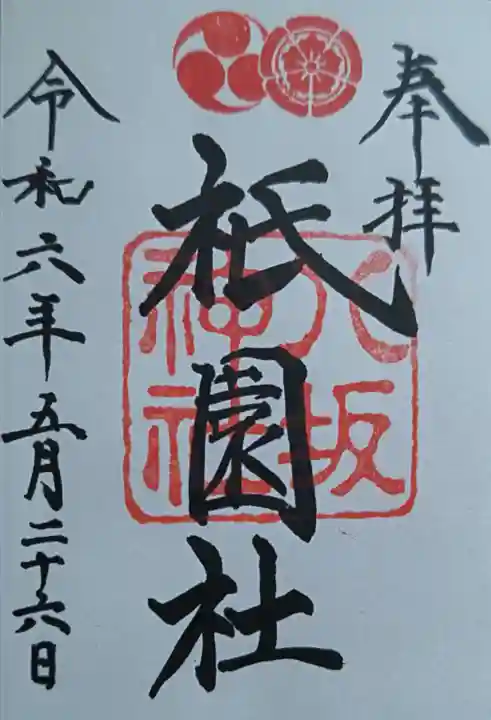 奉拝
八坂
神社
祇園社
令和六年五月二十六日